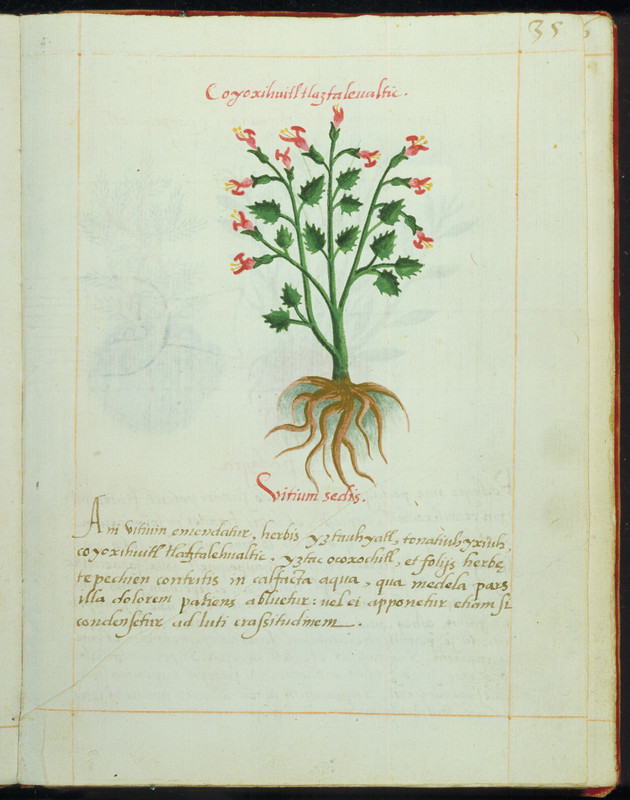 35
Coyoxihuitl tlaztalevaltic.
Vitium sedis.
Ani vitium emendatur, herbis yztauhyatl, tonatiuh yxiuh,
coyoxihuitl tlaztalehualtic. yztac ocoxochitl, et folijs herbę
tepechien contritis in calfacta aqua, qua medela pars
illa dolorem patiens abluetur: uel ei apponetur etiam si
condensetur ad luti crassitudinem.